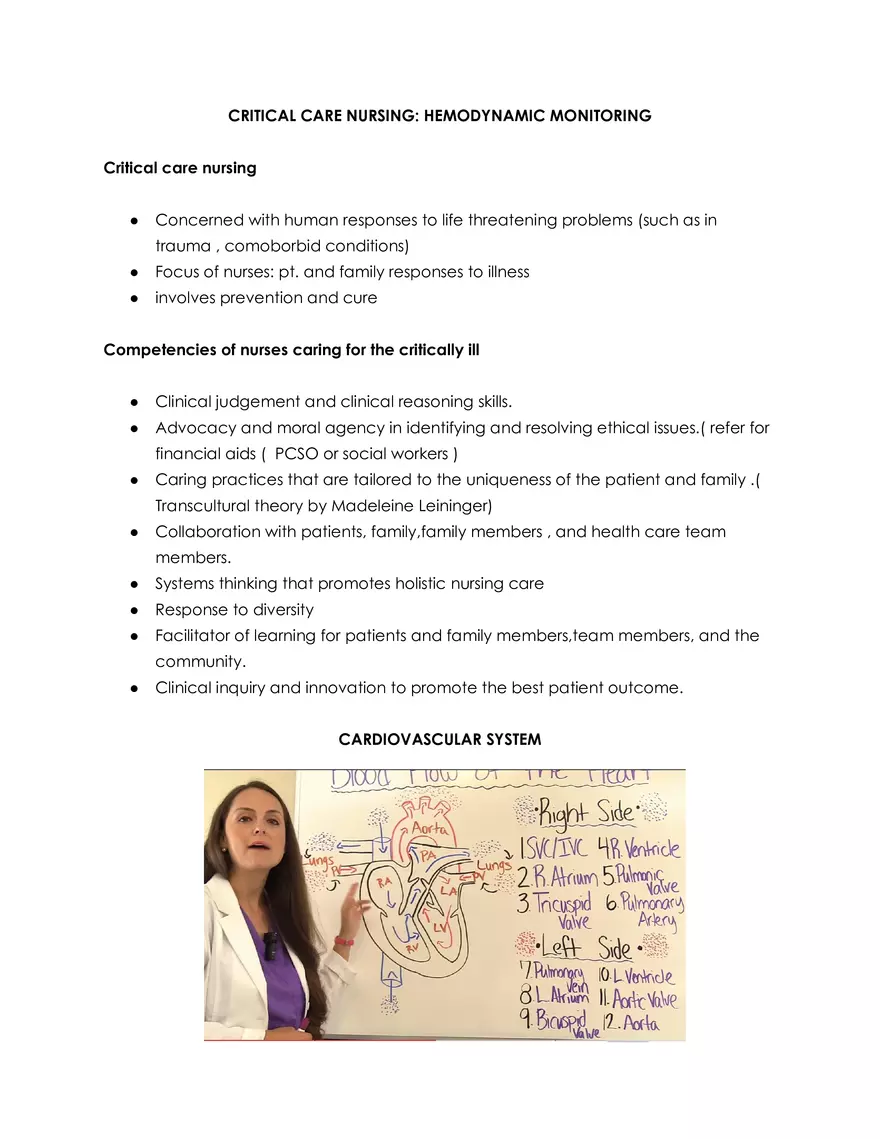 CRITICAL CARE NURSING: HEMODYNAMIC MONITORING
Critical care nursing
● Concerned with human responses to life threatening problems (such as in
trauma , comoborbid conditions)
● Focus of nurses: pt. and family responses to illness
● involves prevention and cure
Competencies of nurses caring for the critically ill
● Clinical judgement and clinical reasoning skills.
● Advocacy and moral agency in identifying and resolving ethical issues.( refer for
financial aids ( PCSO or social workers )
● Caring practices that are tailored to the uniqueness of the patient and family .(
Transcultural theory by Madeleine Leininger)
● Collaboration with patients, family,family members , and health care team
members.
● Systems thinking that promotes holistic nursing care
● Response to diversity
● Facilitator of learning for patients and family members,team members, and the
community.
● Clinical inquiry and innovation to promote the best patient outcome.
CARDIOVASCULAR SYSTEM
Blood Flow of The Heart
Aorta
PA
Lungs
PV
Lungs
PV
RA
LA
LV
RV
•Right Side•
1. SVC/IVC 4. R. Ventricle
2. R. Atrium 5. Pulmonic
Valve
3. Tricuspid 6. Pulmonary
Valve Artery
•Left Side•
7. Pulmonary 10. L Ventricle
Vein
8. L Atrium 11. Aortic Valve
9. Bicuspid 12. Aorta
Valve